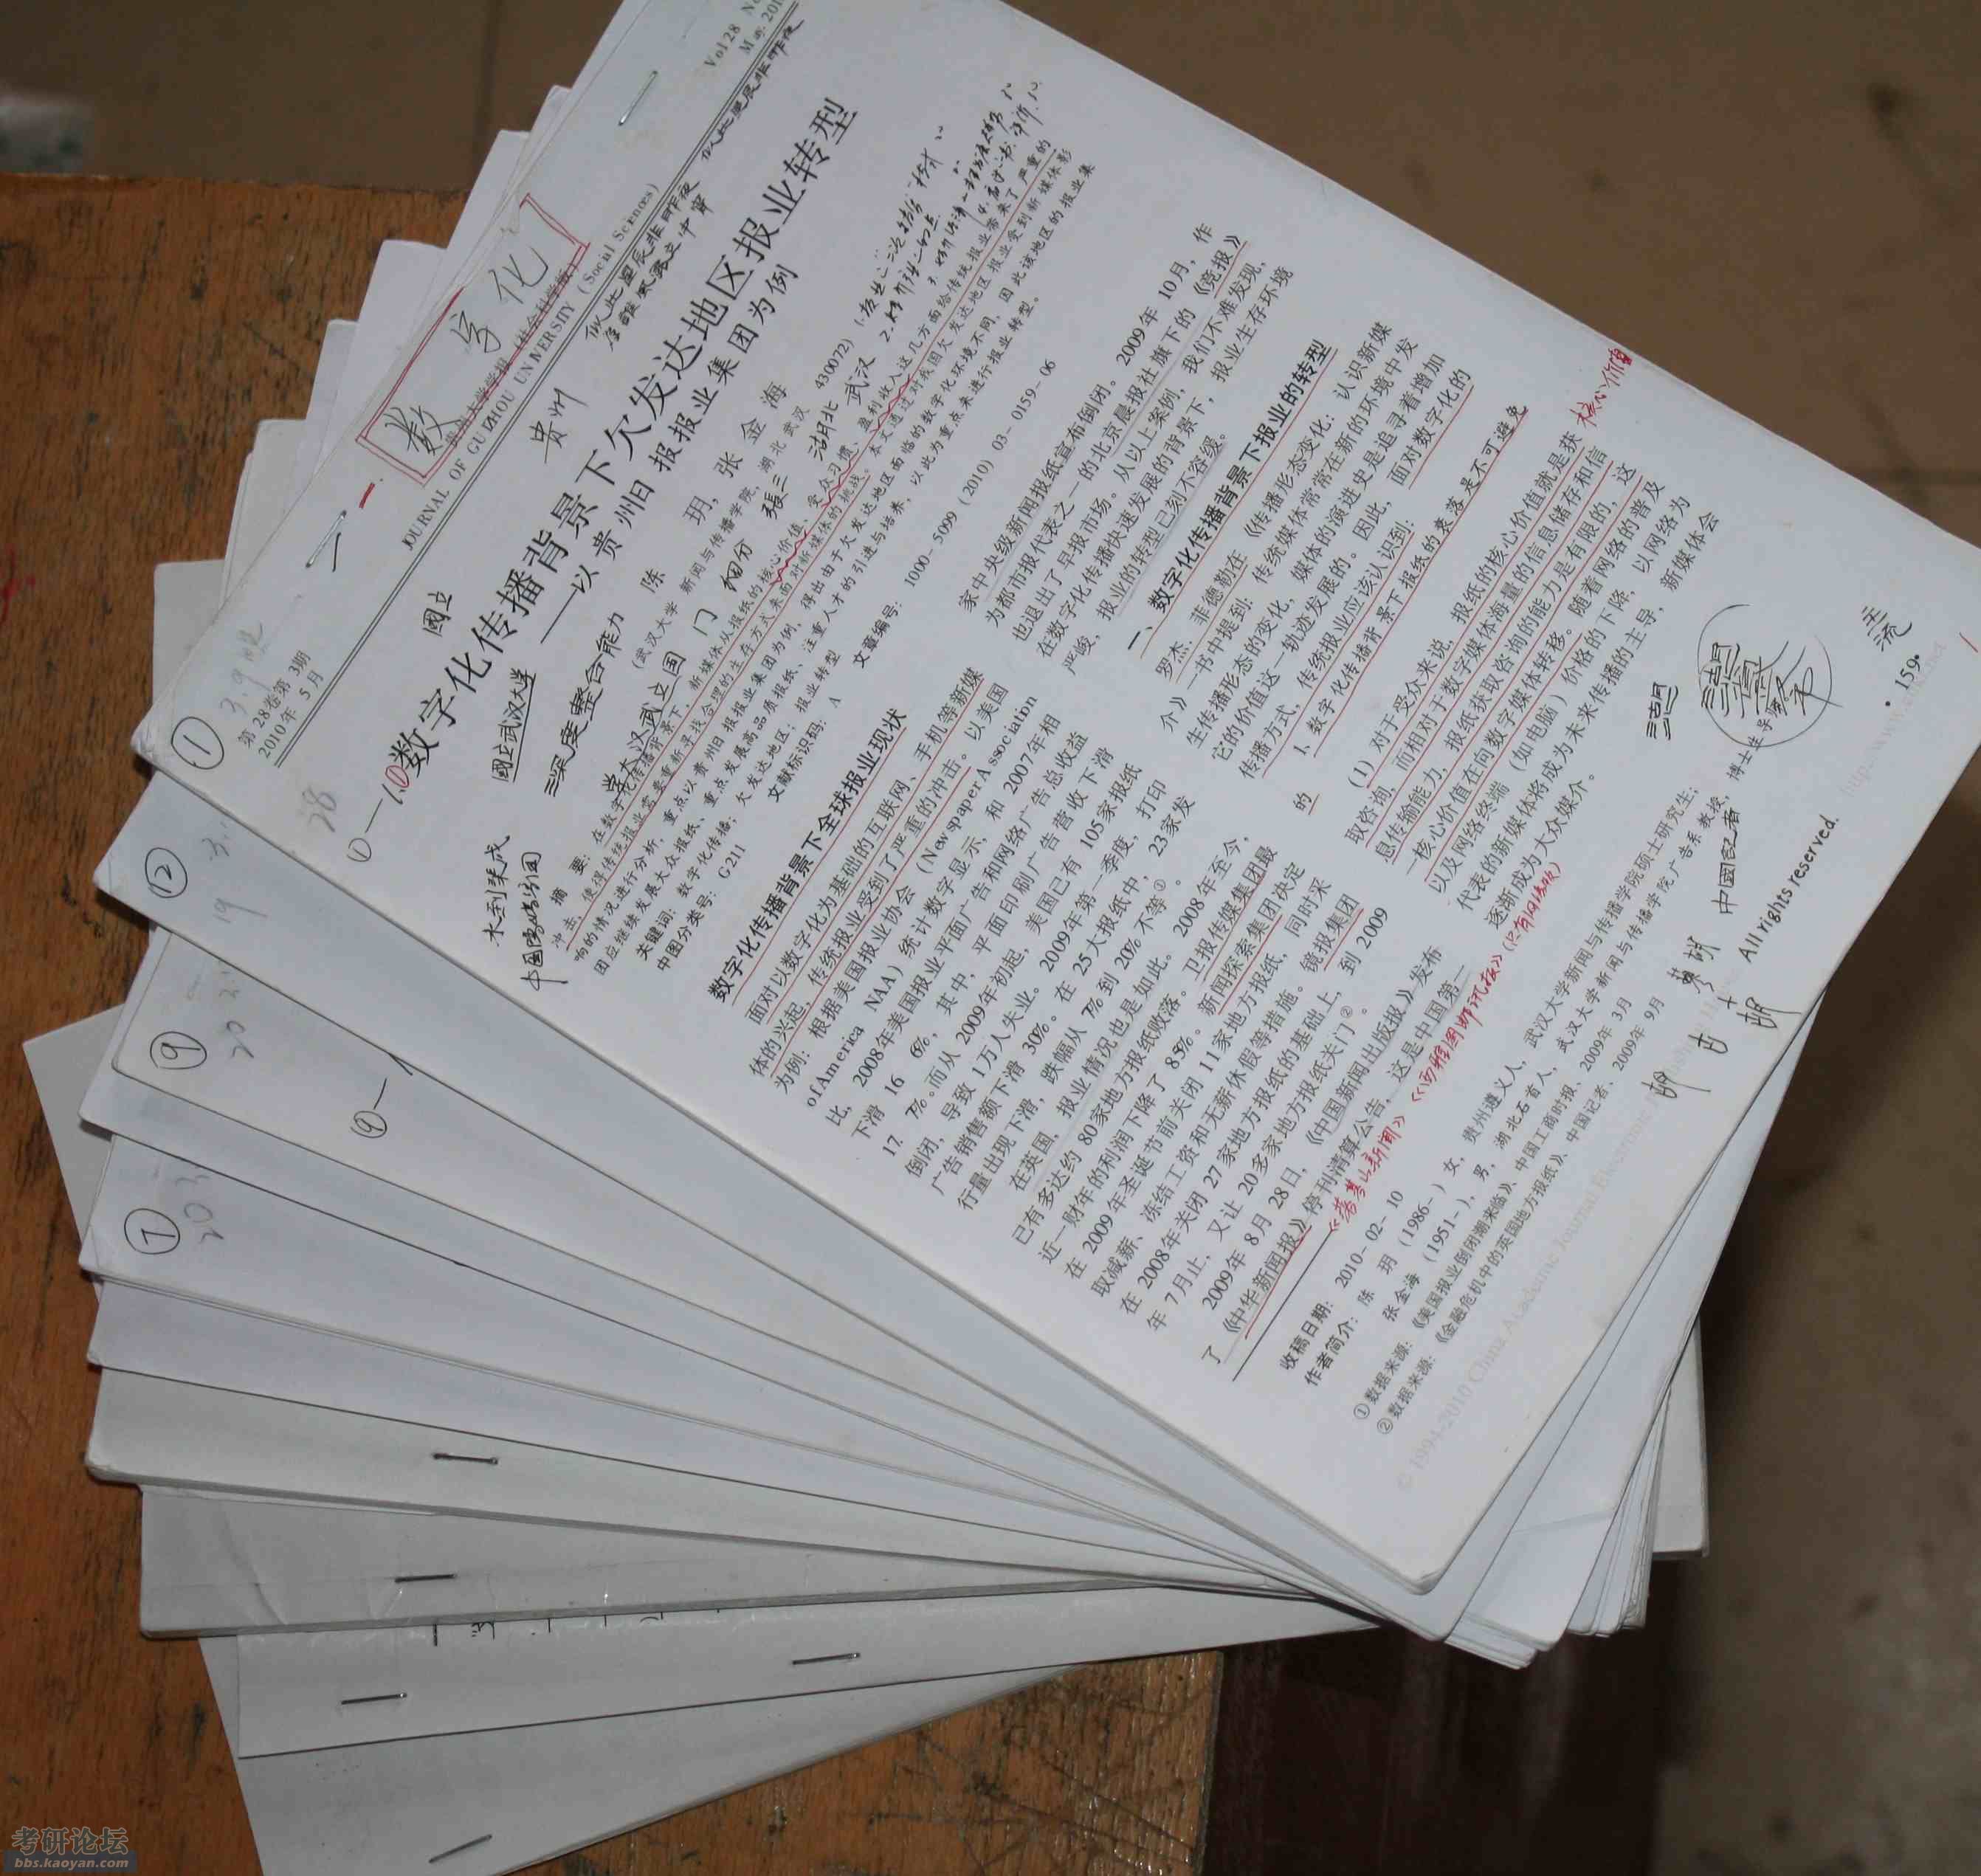 Vol 28
数字化
贵州大学学报（社会科学版）
JOURNAL OF GUIZHOU UNIVERSITY (Social Sciences)
① 3.9
第28卷第3期
2010年5月
似此星辰非昨夜
似此星辰非昨夜
为谁风露立中宵
贵州
國立
國立武汉大学
①—1.0 数字化传播背景下欠发达地区报业转型
——以贵州日报报业集团为例
深度整合能力
陈 玥，张金海
（武汉大学 新闻与传播学院，湖北 武汉 430072）
学大汉武立国 门 细分 張三 湖北 武汉
水到渠成
摘 要：在数字化传播背景下，新媒体从报纸的核心价值、受众习惯、盈利收入这几方面给传统报业带来了严重的
冲击，使得传统报业需要重新寻找合理的生存方式来面对新媒体的挑战。本文通过对我国欠发达地区报业受到新媒体影
响的情况进行分析，重点以贵州日报报业集团为例，得出由于欠发达地区面临的数字化环境不同，因此该地区的报业集
团应继续发展大众报纸、重点发展高品质报纸、注重人才的引进与培养，以此为重点来进行报业转型。
关键词：数字化传播；欠发达地区；报业转型
中图分类号：G211 文献标识码：A 文章编号：1000-5099（2010）03-0159-06
数字化传播背景下全球报业现状
面对以数字化为基础的互联网、手机等新媒
体的兴起，传统报业受到了严重的冲击。以美国
为例：根据美国报业协会（Newspaper Association
of America NAA）统计数字显示，和2007年相
比，2008年美国报业平面广告和网络广告总收益
下滑16 6%，其中，平面印刷广告营收下滑
17. 7%。而从2009年初起，美国已有105家报纸
倒闭，导致1万人失业。2009年第一季度，打印
广告销售额下滑30%。在25大报纸中，23家发
行量出现下滑，跌幅从7%到20%不等①。
在英国，报业情况也是如此。2008年至今，
已有多达约80家地方报纸败落。卫报传媒集团最
近一财年的利润下降了85%。新闻探索集团决定
在2009年圣诞节前关闭11家地方报纸，同时采
取减薪、冻结工资和无薪休假等措施。镜报集团
在2008年关闭27家地方报纸的基础上，到2009
年7月止，又让20多家地方报纸关门②。
2009年8月28日，《中国新闻出版报》发布
了《中华新闻报》停刊清算公告，这是中国第一
家中央级新闻报纸宣布倒闭。2009年10月，作
为都市报代表之一的北京晨报社旗下的《竞报》
也退出了早报市场。从以上案例，我们不难发现，
在数字化传播快速发展的背景下，报业生存环境
严峻，报业的转型已刻不容缓。
一、数字化传播背景下报业的转型
罗杰、菲德勒在《传播形态变化：认识新媒
介》一书中提到：传统媒体常常在新的环境中发
生传播形态的变化，媒体的演进史是追寻着增加
它的价值这一轨迹发展的。因此，面对数字化的
传播方式，传统报业应该认识到：
1. 数字化传播背景下报纸的衰落是不可避免
的
（1）对于受众来说，报纸的核心价值就是获
取咨询，而相对于数字媒体海量的信息储存和信
息传输能力，报纸获取咨询的能力是有限的，这
一核心价值在向数字媒体转移。随着网络的普及
以及网络终端（如电脑）价格的下降，以网络为
代表的新媒体将成为未来传播的主导，新媒体会
逐渐成为大众媒介。
核心价值
《落基山新闻》《西雅图邮讯报》（只有网络版）
收稿日期：2010-02-10
作者简介：陈 玥（1986-）女，贵州遵义人，武汉大学新闻与传播学院硕士研究生；
张金海（1951-），男，湖北石首人，武汉大学新闻与传播学院广告系教授，博士生导师。
①数据来源：《美国报业倒闭潮来临》、中国工商时报、2009年3月
②数据来源：《金融危机中的英国地方报纸》、中国记者、2009年9月
中國記者
主流
·159·
© 1994-2010 China Academic Journal Electronic Publishing House. All rights reserved. http://www.cnki.net
⑫ 3.
19
⑨
⑨—1
⑦
考研论坛
bbs.kaoyan.com